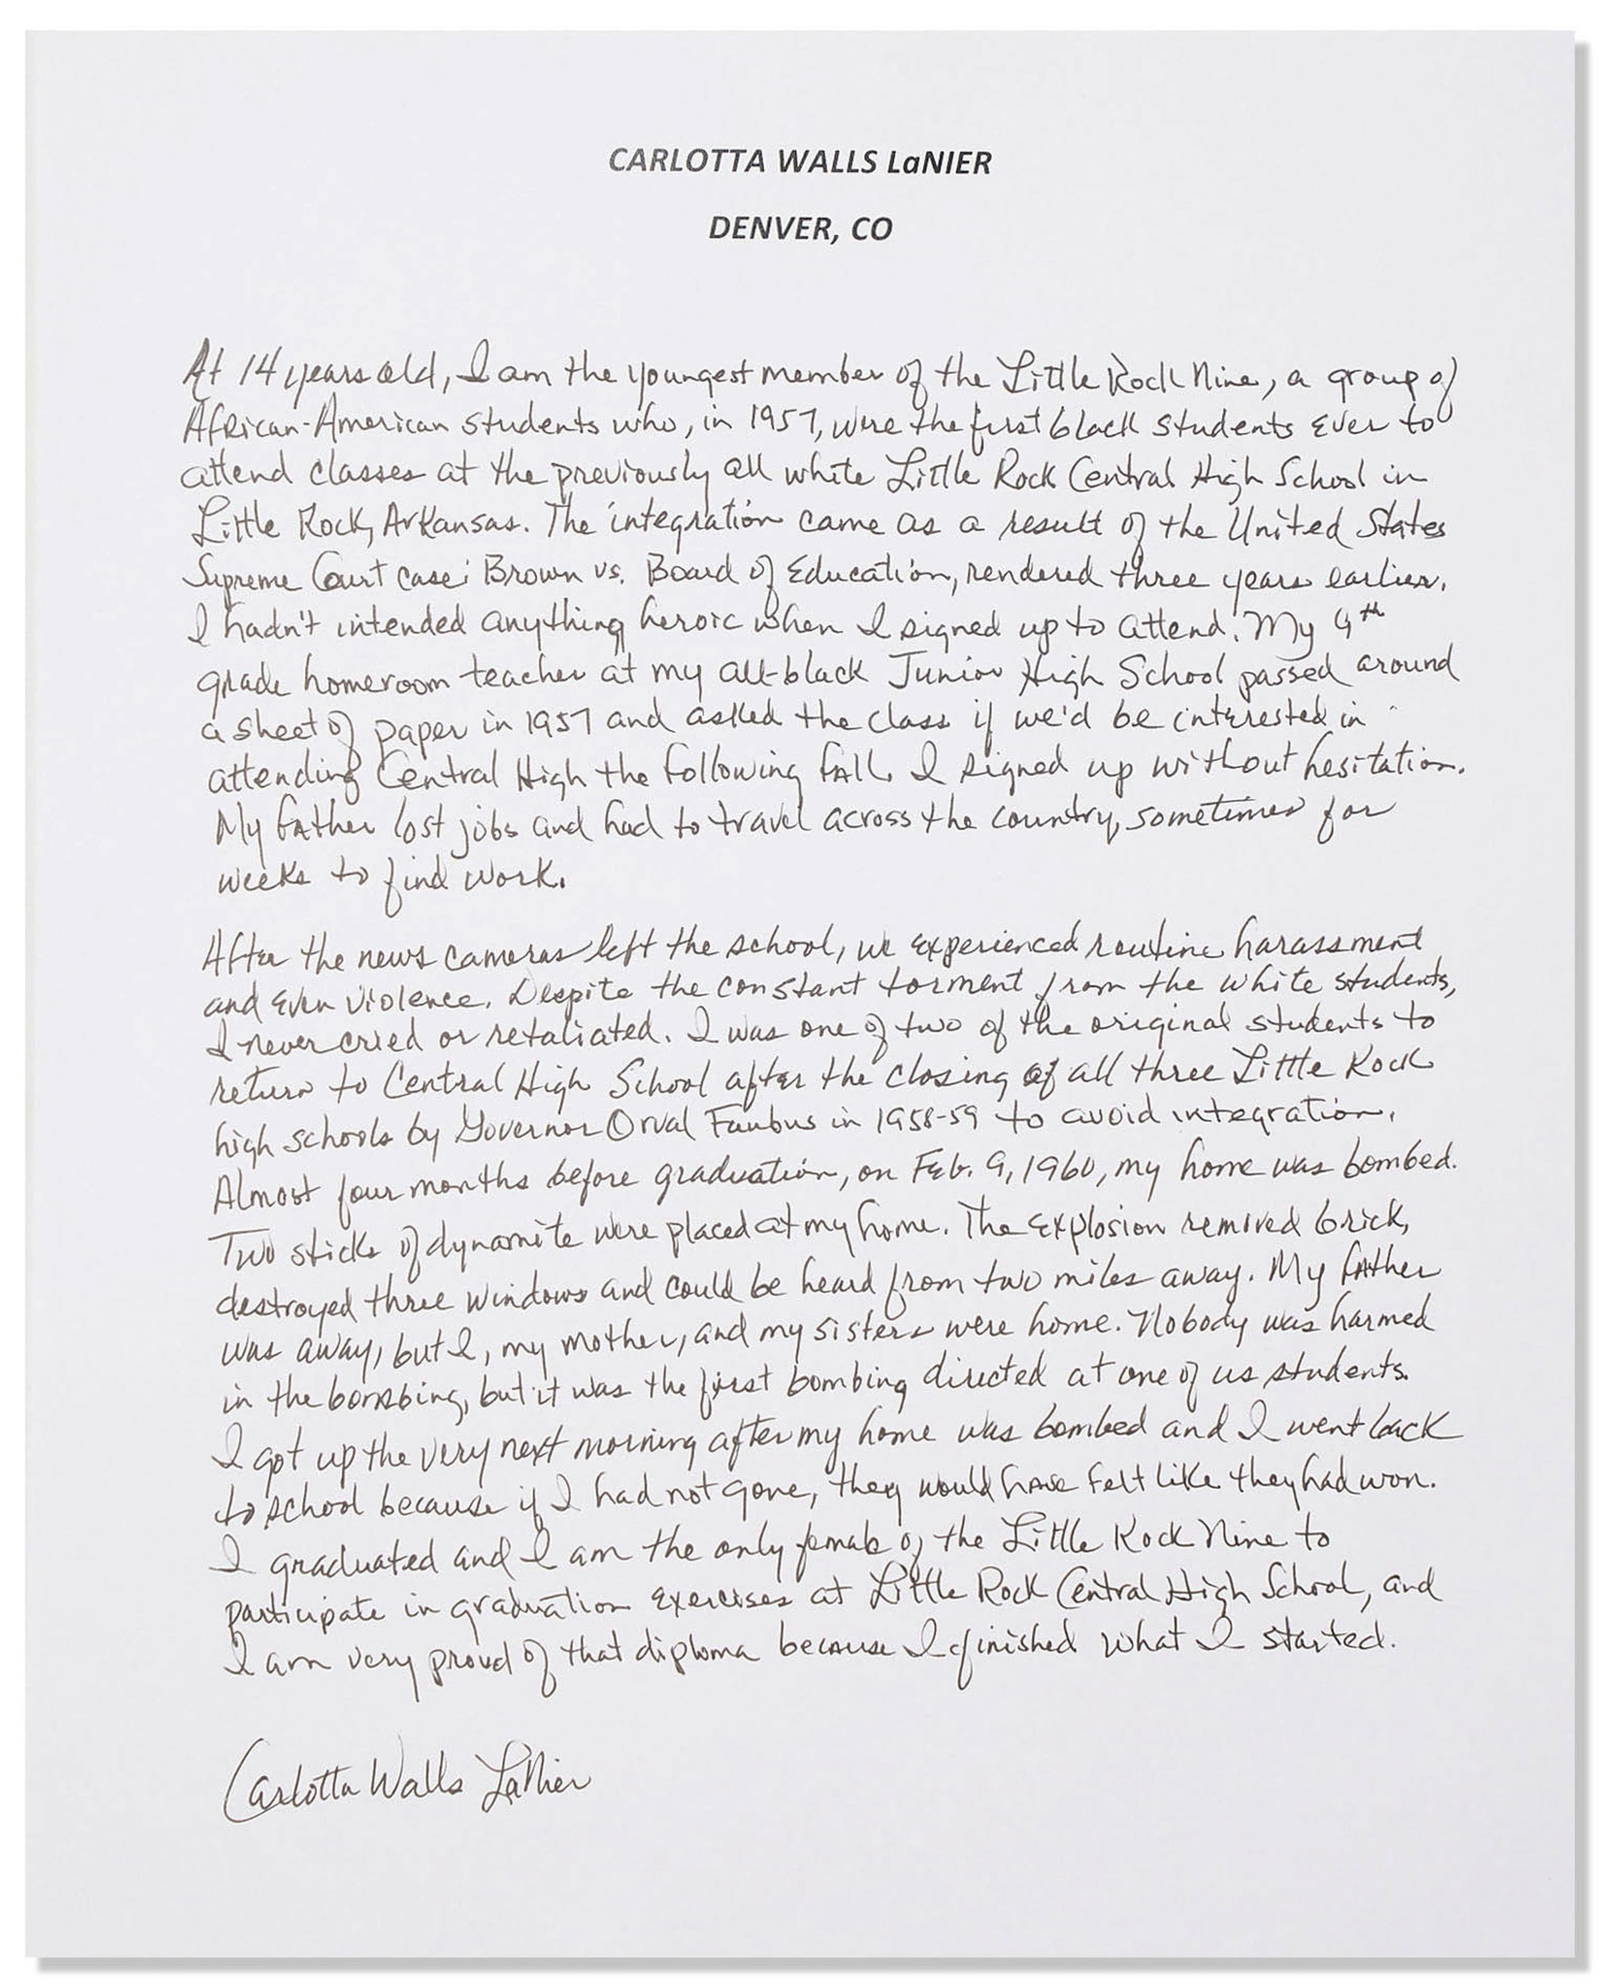 CARLOTTA WALLS LaNIER
DENVER, CO
At 14 years old, I am the youngest member of the Little Rock Nine, a group of
African-American students who, in 1957, were the first black students ever to
attend classes at the previously all white Little Rock Central High School in
Little Rock, Arkansas. The integration came as a result of the United States
Supreme Court case: Brown vs. Board of Education, rendered three years earlier.
I hadn't intended anything heroic when I signed up to attend. My 9th
grade homeroom teacher at my all-black Junior High School passed around
a sheet of paper in 1957 and asked the class if we'd be interested in
attending Central High the following fall. I signed up without hesitation.
My father lost jobs and had to travel across the country, sometimes for
weeks to find work.
After the news cameras left the school, we experienced routine harassment
and even violence. Despite the constant torment from the white students,
I never cried or retaliated. I was one of two of the original students to
return to Central High School after the closing of all three Little Rock
high schools by Governor Orval Faubus in 1958-59 to avoid integration.
Almost four months before graduation, on Feb. 9, 1960, my home was bombed.
Two sticks of dynamite were placed at my home. The explosion removed brick,
destroyed three windows and could be heard from two miles away. My father
was away, but I, my mother, and my sisters were home. Nobody was harmed
in the bombing, but it was the first bombing directed at one of us students.
I got up the very next morning after my home was bombed and I went back
to school because if I had not gone, they would have felt like they had won.
I graduated and I am the only female of the Little Rock Nine to
participate in graduation exercises at Little Rock Central High School, and
I am very proud of that diploma because I finished what I started.
Carlotta Walls LaNier